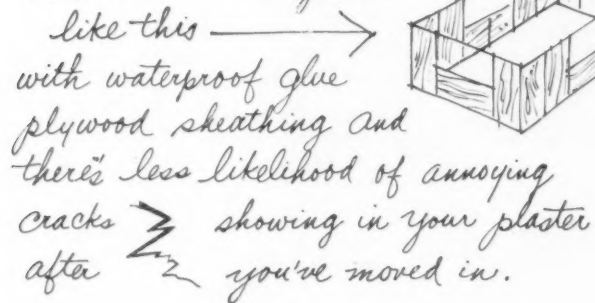 like this
with waterproof glue
plywood sheathing and
there's less likelihood of annoying
cracks showing in your plaster
after you've moved in.